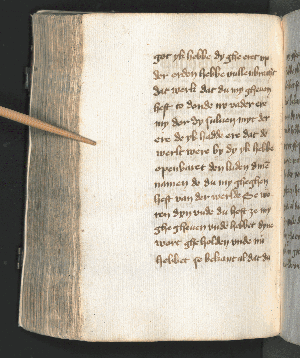 got yk hebbe dy ghe eret vp
der erden hebbe vullenbracht
dat werk dat du my gheuen
hest to donde nv vader ere
my der dy suluen myt der
ere de yk hadde ere dat de
werlt were by dy yk hebbe
openbaret den luden dine
namen de du my gheghen
hest van der werlde Se we
ren dyn vnde du hest ze my
ghe gheuen vnde hebbet dyne
wort ghe holden vnde nu
hebbet ze bekant al dat du